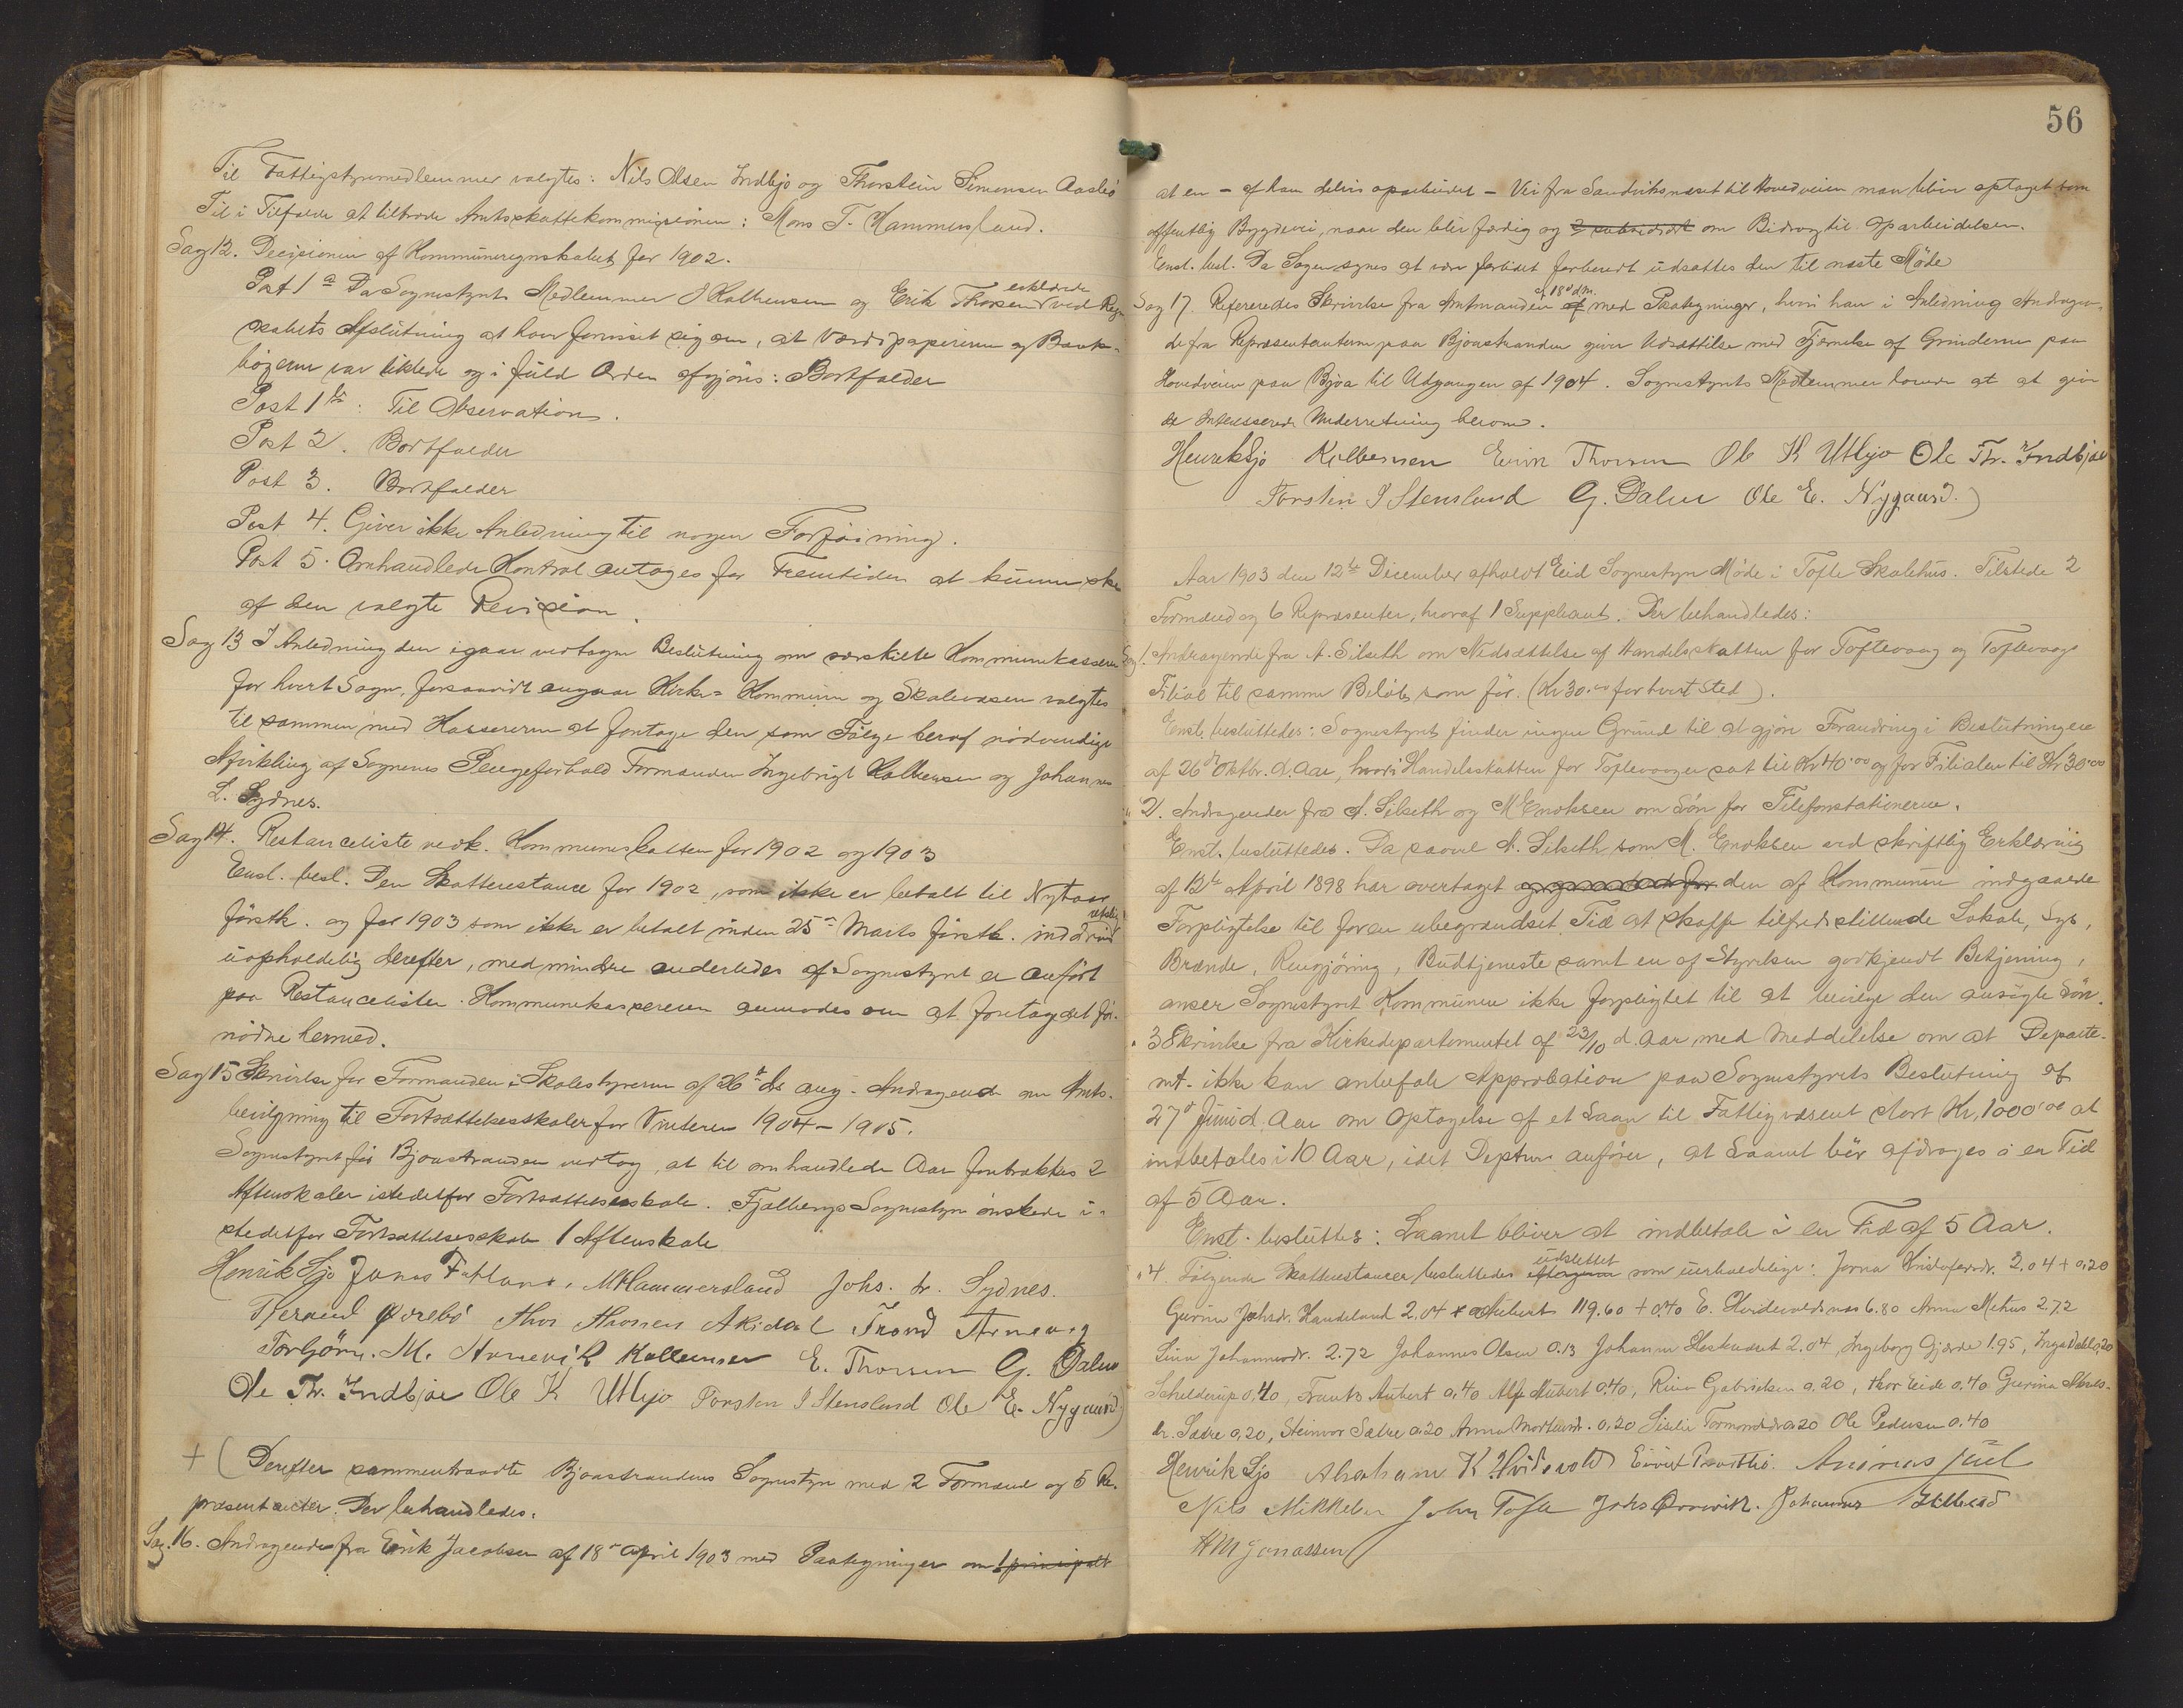 Til Fattigstyremedlemmer valgtes: Nils Olsen Indbjo og Thorstein Simonsen Aasbö
Til i Tilfælde at tiltræde Amtsskattekommissionen: Mons T. Hammersland.
Sag 12. Decisionen af Kommuneregnskabet for 1902.
Post 1 a Da Sognestyrets Medlemmer I Kolbensen og Erik Thorsen erklærede ved Regn-
skabets Afslutning at have forvisset sig om, at Værdipapirerne og Bank-
bögerne var tilstede og i fuld Orden afgjöres: Bortfalder
Post 1 b: Til Observation.
Post 2. Bortfalder
Post 3. Bortfalder
Post 4. Giver ikke Anledning til nogen Forföining.
Post 5. Omhandlede Kontrol antages for Fremtiden at kunne ske
af den valgte Revision.
Sag 13 I Anledning den igaar vedtagne Beslutning om særskilte Kommunekasserere
for hvert Sogn, forsaavidt angaar Kirke- Kommune og Skolevæsen valgtes
til sammen med Kassereren at foretage den som Fölge heraf nödvendige
Afvikling af Sognenes Pengeforhold Formanden Ingebrigt Kolbensen og Johannes
L. Sydnes.
Sag 14. Restanceliste vedk. Kommuneskatten for 1902 og 1903
Enst. besl. Den Skatterestance for 1902, som ikke er betalt til Nytaar
förstk. og for 1903 som ikke er betalt inden 25de Marts förstk. inddrives retslig
uopholdelig derefter, medmindre anderledes af Sognestyret er anfört
paa Restancelisten. Kommunekassereren anmodes om at foretage det for-
nödne hermed.
Sag 15 Skrivelse fra Formanden i Skolestyrerne af 26de ds ang. Andragende om Amts-
bevilgning til Fortsættelsesskoler for Vinteren 1904-1905.
Sognestyret for Bjoastranden vedtog, at til omhandlede Aar foretrækkes 2
Aftenskoler istedetfor Fortsættelsesskole. Fjelbergs Sognestyre önskede i-
stedetfor Fortsættelsesskole 1 Aftenskole
Henrik Sjo Jonas Fatland, M Hammersland Johs. L. Sydnes.
Thor Thorsen A Kidal Trond
Torbjörn. M. Kolbensen E. Thorsen G. Dalen
Ole Th. Indbjoe Ole K Utbjo Torsten I Stensland Ole E. Nygaard)
+ (Derefter sammentraadte Bjoastrandens Sognestyre med 2 Formænd og 5 Re-
præsentanter. Der behandledes.
Sag. 16. Andragende fra Erik Jacobsen af 18de April 1903 med Paategninger om 1 principalt
56
at en - af ham delvis oparbeidet - Vei fra Sandviksnæset til Hovedveien maa blive optaget som
offentlig Bygdevei, naar den blir færdig og 2 subsidiært om Bidrag til Oparbeidelsen.
Enst. besl. Da Sagen synes at være forlidet forberedt udsættes den til næste Möde
Sag 17. Refereredes Skrivelse fra Amtmanden af 18de dm. med Paategninger, hvori han i Anledning Andragen-
de fra Repræsentanterne paa Bjoastranden giver Udsættelse med Fjernelse af Grinderne paa
Hovedveien paa Bjoa til Udgangen af 1904. Sognestyrets Medlemmer lovede at at give
de Interesserede Underretning herom.
Henrik Sjo Kolbensen Erik Thorsen Ole K Utbjo Ole Th. Indbjoe
Torsten I Stensland G. Dalen Ole E. Nygaard.)
Aar 1903 den 12te December afholdt Eid Sognestyre Möde i Tofte Skolehus. Tilstede 2
Formænd og 6 Repræsenter, hvoraf 1 Suppleant. Der behandledes:
Sag 1. Andragende fra A. Silseth om Nedsættelse af Handelsskatten for Toftevaag og Toftevaags
Filial til samme Belöb som för. (Kr 30.00 for hvert Sted).
Enst. besluttedes: Sognestyret finder ingen Grund til at gjöre Forandring i Beslutningen
af 26de Oktbr. d. Aar, hvori Handelsskatten for Toftevaagen sat til Kr 40.00 og for Filialen til Kr 30.00
" 2. Andragender fra A. Silseth og M Enoksen om Lön for Telefonstationerne.
Enst. besluttedes. Da saavel A. Silseth som M. Enoksen ved skriftlig Erklæring
af 12te April 1898 har overtaget den af Kommunen indgaaede
Forpligtelse til for en ubegrændset Tid at skaffe tilfredsstillende Lokale, Lys,
Brænde, Rengjöring, Budtjeneste samt en af Styrelsen godkjendt Betjening,
anser Sognestyret Kommunen ikke forpligtet til at bevilge den ansögte Lön.
" 3 Skrivelse fra Kirkedepartementet af 23/10 d. Aar med Meddelelse om at Departe-
mt. ikke kan anbefale Approbation paa Sognestyrets Beslutning af
27de Juni d. Aar om Optagelse af et Laan til Fattigvæsenet stort Kr. 1000.00 at
indbetales i 10 Aar, idet Deptem. anförer, at Laanet bör afdrages i en Tid
af 5 Aar.
Enst. besluttes: Laanet bliver at indbetale i en Tid af 5 Aar.
" 4. Fölgende Skatterestancer besluttedes udslettet som uerholdelige: Jorna Kristofersdr. 2.04 + 0,20
Gurine Johsdr. Handeland 2.04 Aubert 119.60 + 0.40 E. Hvidevoldsnæs 6.80 Anna Mehus 2.72
Lina Johannesdr. 2.72 Johannes Olsen 0.13 Johanne Heskedvet 2.04 Ingeborg Gjerde 1.95, Inga Dahl 0,20
Schelderup 0.40, Frants Aubert 0.40 Alf Aubert 0.40, Rina Gabrielsen 0.20, Thor Eide 0.40 Gurina
dr. Sætre 0.20, Steinvor Sætre 0.20 Anna Mortensd. 0.20 Ole Pedersen 0.40
Henrik Sjo Abraham K. Hvidevold Andreas Juul
Nils Mikkelsen John Tofte Johs Johannes
H M Jonassen